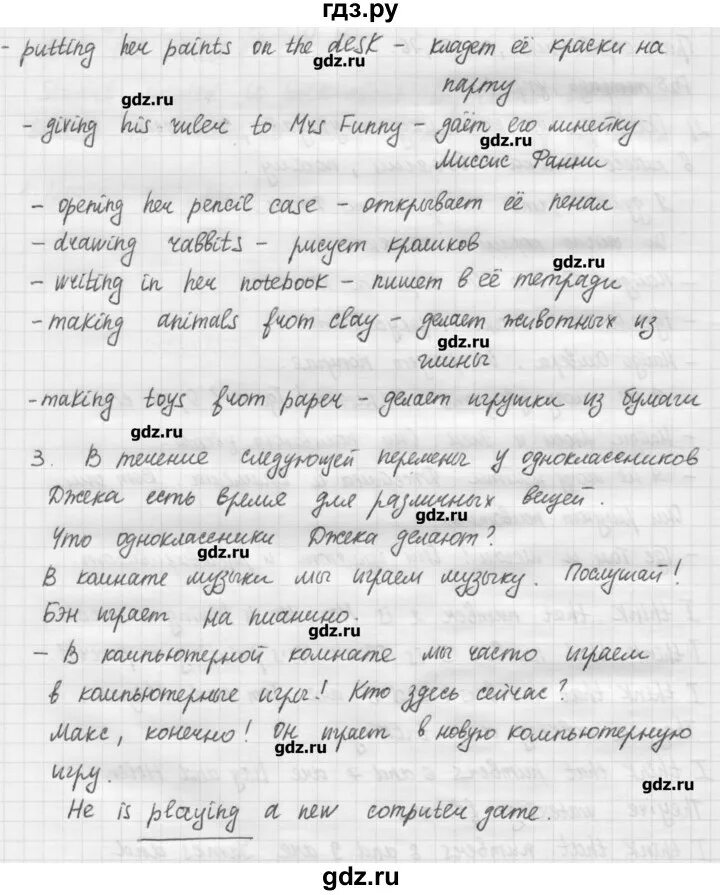 гдз.ру
- putting her paints on the desk - кладет её краски на
гдз.ru
парту
гдз.ru
- giving his ruler to Mrs Funny - даёт его линейку
гдз.ru
Миссис Фанни
- opening her pencil case - открывает её пенал
гдз.ru
- drawing rabbits - рисует кроликов
- writing in her notebook - пишет в её тетради
- making animals from clay - делает животных из
гдз.ru
глины
- making toys from paper - делает игрушки из бумаги
гдз.ru
3. В течение следующей перемены у одноклассников
Джека есть время для различных вещей.
гдз.ru
Что одноклассники Джека делают?
гдз.ru
В комнате музыки мы играем музыку. Послушай!
Бэн играет на пианино.
гдз.ru
- В компьютерной комнате мы часто играем
в компьютерные игры! Кто здесь сейчас?
гдз.ru
Макс, конечно! Он играет в новую компьютерную
гдз.ru
игру.
гдз.ru
He is playing a new computer game.
гдз.ru